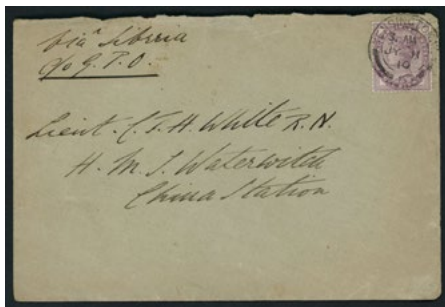 via Siberia
c/o G.P.O.
Lieut. C.T.H. White R.N.
H.M.S. Waterwitch
China Station
JY 11
10